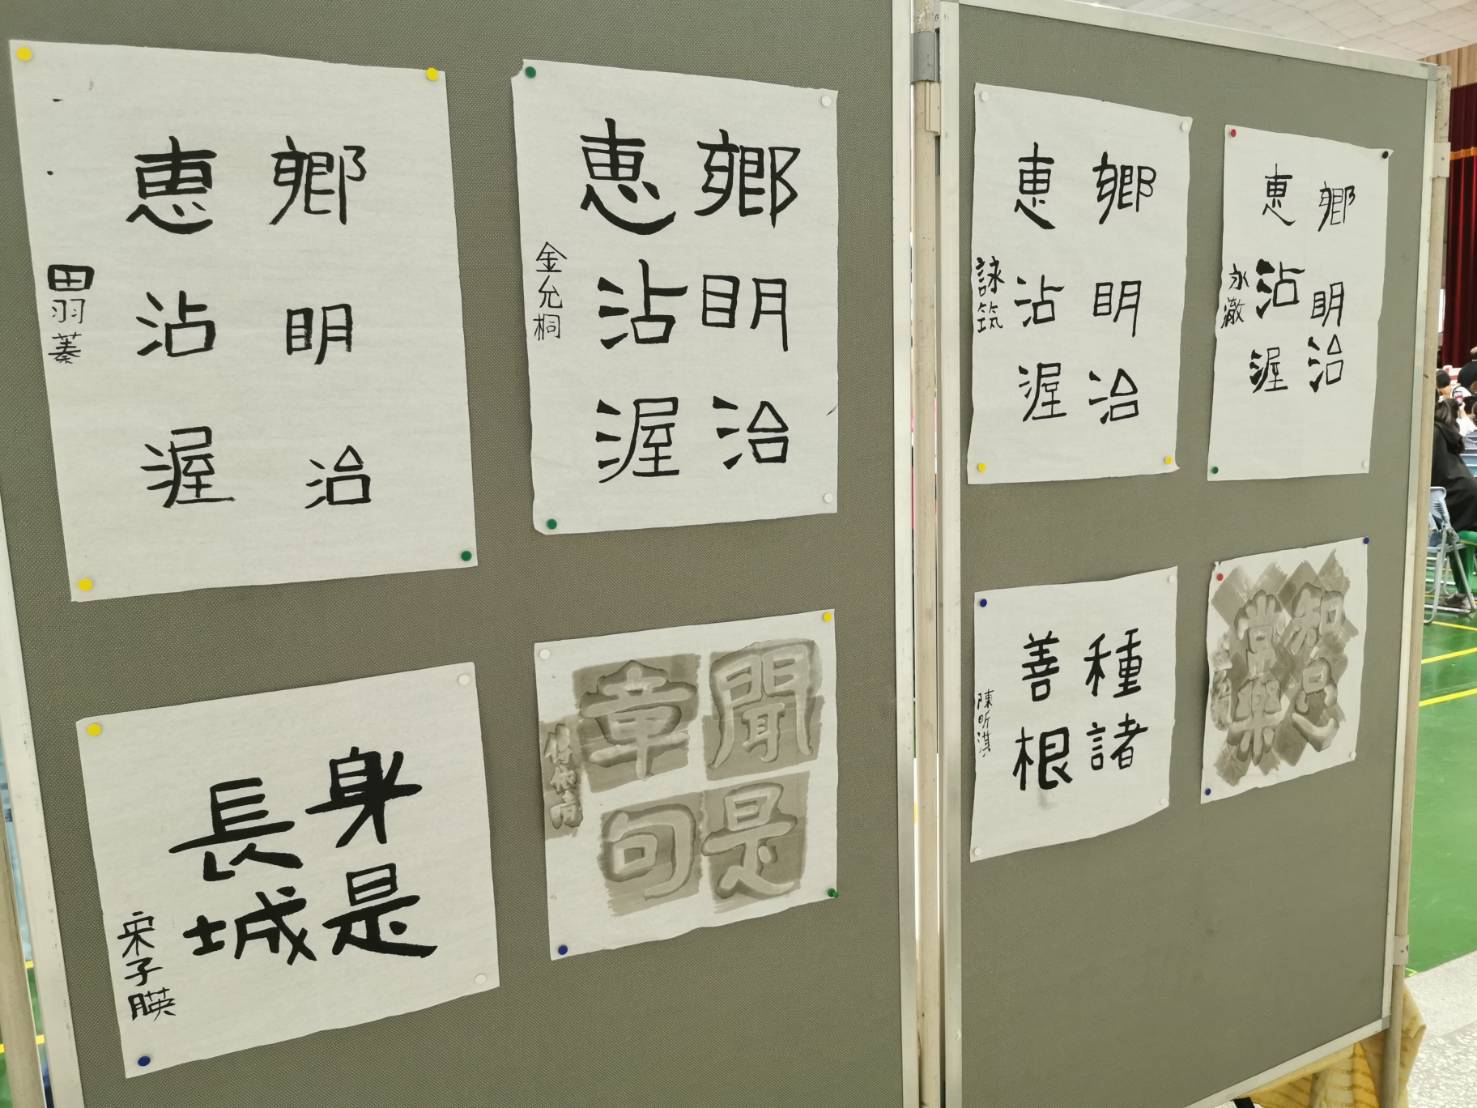 鄉明治
惠沾渥
田羽蓁
鄉明治
惠沾渥
金允桐
身是
長城
宋子瞙
聞是
章句
鄉明治
惠沾渥
詠筑
鄉明治
惠沾渥
永澈
種諸
善根
陳昕淇
知足
常樂